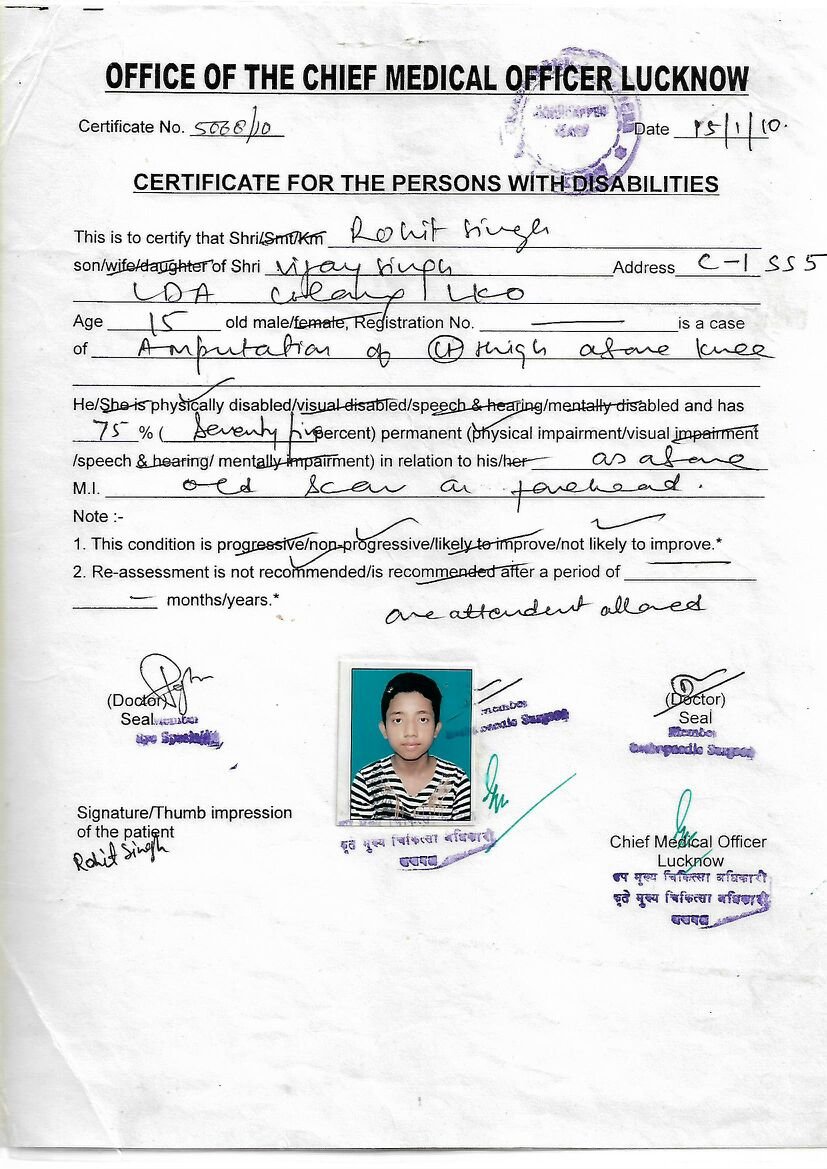 OFFICE OF THE CHIEF MEDICAL OFFICER LUCKNOW
HANDICAPPED
Certificate No. 5068/10 Date 15/1/10.
CERTIFICATE FOR THE PERSONS WITH DISABILITIES
This is to certify that Shri/Smt/Km Rohit Singh
son/wife/daughter of Shri Vijay Singh Address C-1 SS5
LDA Colony LKO
Age 15 old male/female, Registration No. — is a case
of Amputation of thigh above knee
He/She is physically disabled/visual disabled/speech & hearing/mentally disabled and has
75 % ( Seventy five percent) permanent (physical impairment/visual impairment
/speech & hearing/ mentally impairment) in relation to his/her as above
M.I. old scar on forehead.
Note :-
1. This condition is progressive/non-progressive/likely to improve/not likely to improve.*
2. Re-assessment is not recommended/is recommended after a period of —
— months/years.*
one attendent allowed
(Doctor)
Seal
Member
Eye Specialist
Member
Orthopaedic Surgeon
(Doctor)
Seal
Member
Orthopaedic Surgeon
Signature/Thumb impression
of the patient
Rohit Singh
कृते मुख्य चिकित्सा अधिकारी
लखनऊ
Chief Medical Officer
Lucknow
उप मुख्य चिकित्सा अधिकारी
कृते मुख्य चिकित्सा अधिकारी
लखनऊ